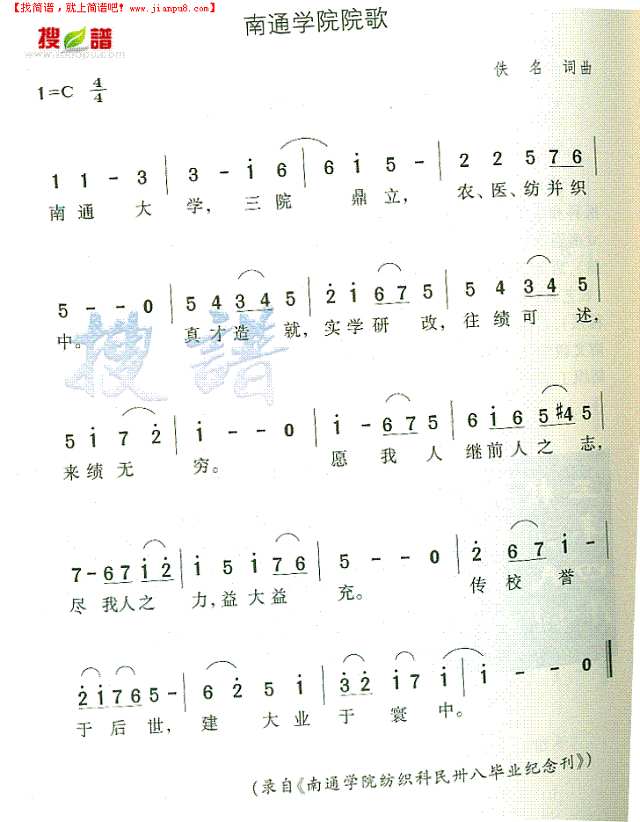 【找简谱，就上简谱吧！www.jianpu8.com】
搜谱
www.sooopu.com
南通学院院歌
佚 名 词曲
1=C 4/4
1 1 - 3 | 3 - i 6 | 6 i 5 - | 2 2 5 7 6 |
南通 大 学, 三院 鼎立, 农、医、纺并织
5 - - 0 | 5 4 3 4 5 | 2̇ i 6 7 5 | 5 4 3 4 5 |
中。 真才造 就, 实学研 改, 往绩可 述,
5 i 7 2̇ | i - - 0 | i - 6 7 5 | 6 i 6 5 #4 5 |
来绩无 穷。 愿 我 人 继前人之志,
7 - 6 7 i 2̇ | i 5 i 7 6 | 5 - - 0 | 2̇ 6 7 i - |
尽 我人之 力, 益大益 充。 传 校 誉
2̇ i 7 6 5 - | 6 2̇ 5 i | 3̇ 2̇ i 7 i | i - - 0 ‖
于后世, 建 大业 于 寰 中。
搜谱
(录自《南通学院纺织科民卅八毕业纪念刊》)